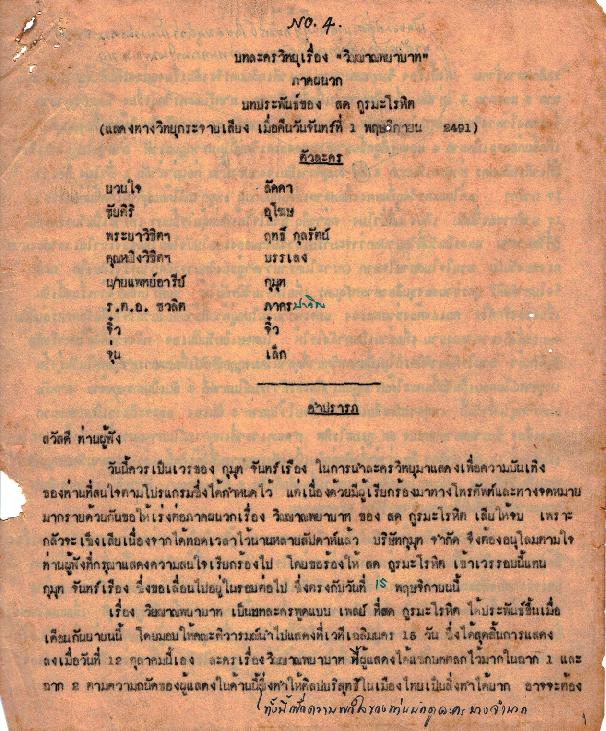 NO. 4.
บทละครวิทยุเรื่อง "วิญญาณพยาบาท"
ภาคผนวก
บทประพันธ์ของ สด กูรมะโรหิต
(แสดงทางวิทยุกระจายเสียง เมื่อคืนวันจันทร์ที่ 1 พฤษจิกายน 2491)
ตัวละคร
ยวนใจ ลัดดา
ชัยคิริ อุโฆษ
พระยาวิชิตฯ ฤทธิ์ กุลรัตน์
คุณหญิงวิชิตฯ บรรเลง
นายแพทย์อารีย์ กุมุท
ร.ต.อ. ชวลิต ภาคร
จิ๋ว จิ๋ว
จุ่น เล็ก
คำปรารภ
สวัสดี ท่านผู้ฟัง
วันนี้ควรเป็นเวรของ กุมุท จันทร์เรือง ในการนำละครวิทยุมาแสดงเพื่อความบันเทิง
ของท่านที่สนใจตามโปรแกรมซึ่งได้กำหนดไว้ แต่เนื่องด้วยมีผู้เรียกร้องมาทางโทรศัพท์และทางจดหมาย
มากรายด้วยกันขอให้เร่งต่อภาคผนวกเรื่อง วิญญาณพยาบาท ของ สด กูรมะโรหิต เสียให้จบ เพราะ
กลัวจะเซ็งเสียเนื่องจากได้ทอดเวลาไว้นานหลายสัปดาห์แล้ว บริษัทกุมุท จำกัด จึงต้องอนุโลมตามใจ
ท่านผู้ฟังที่กรุณาแสดงความสนใจเรียกร้องไป โดยขอร้องให้ สด กูรมะโรหิต เข้าเวรรอบนี้แทน
กุมุท จันทร์เรือง ซึ่งขอเลื่อนไปอยู่ในรอบต่อไป ซึ่งตรงกับวันที่ 15 พฤษจิกายนนี้
เรื่อง วิญญาณพยาบาท เป็นบทละครพูดแบบ เพลย์ ที่สด กูรมะโรหิต ได้ประพันธ์ขึ้นเมื่อ
เดือนกันยายนนี้ โดยมอบให้คณะศิวารมณ์นำไปแสดงที่เวทีเฉลิมนคร 15 วัน ซึ่งได้สุดสิ้นการแสดง
ลงเมื่อวันที่ 12 ตุลาคมนี้เอง ละครเรื่องวิญญาณพยาบาท ที่ผู้แสดงได้แซกบทตลกไว้มากในฉาก 1 และ
ฉาก 2 ตามความถนัดของผู้แสดงในด้านนี้ซึ่งทำให้ศิลปบริสุทธิ์ในเมืองไทยเป็นสิ่งทำได้ยาก อาจจะต้อง
ทั้งนี้เพื่อความพอใจของท่านผู้ดูละครบางจำพวก